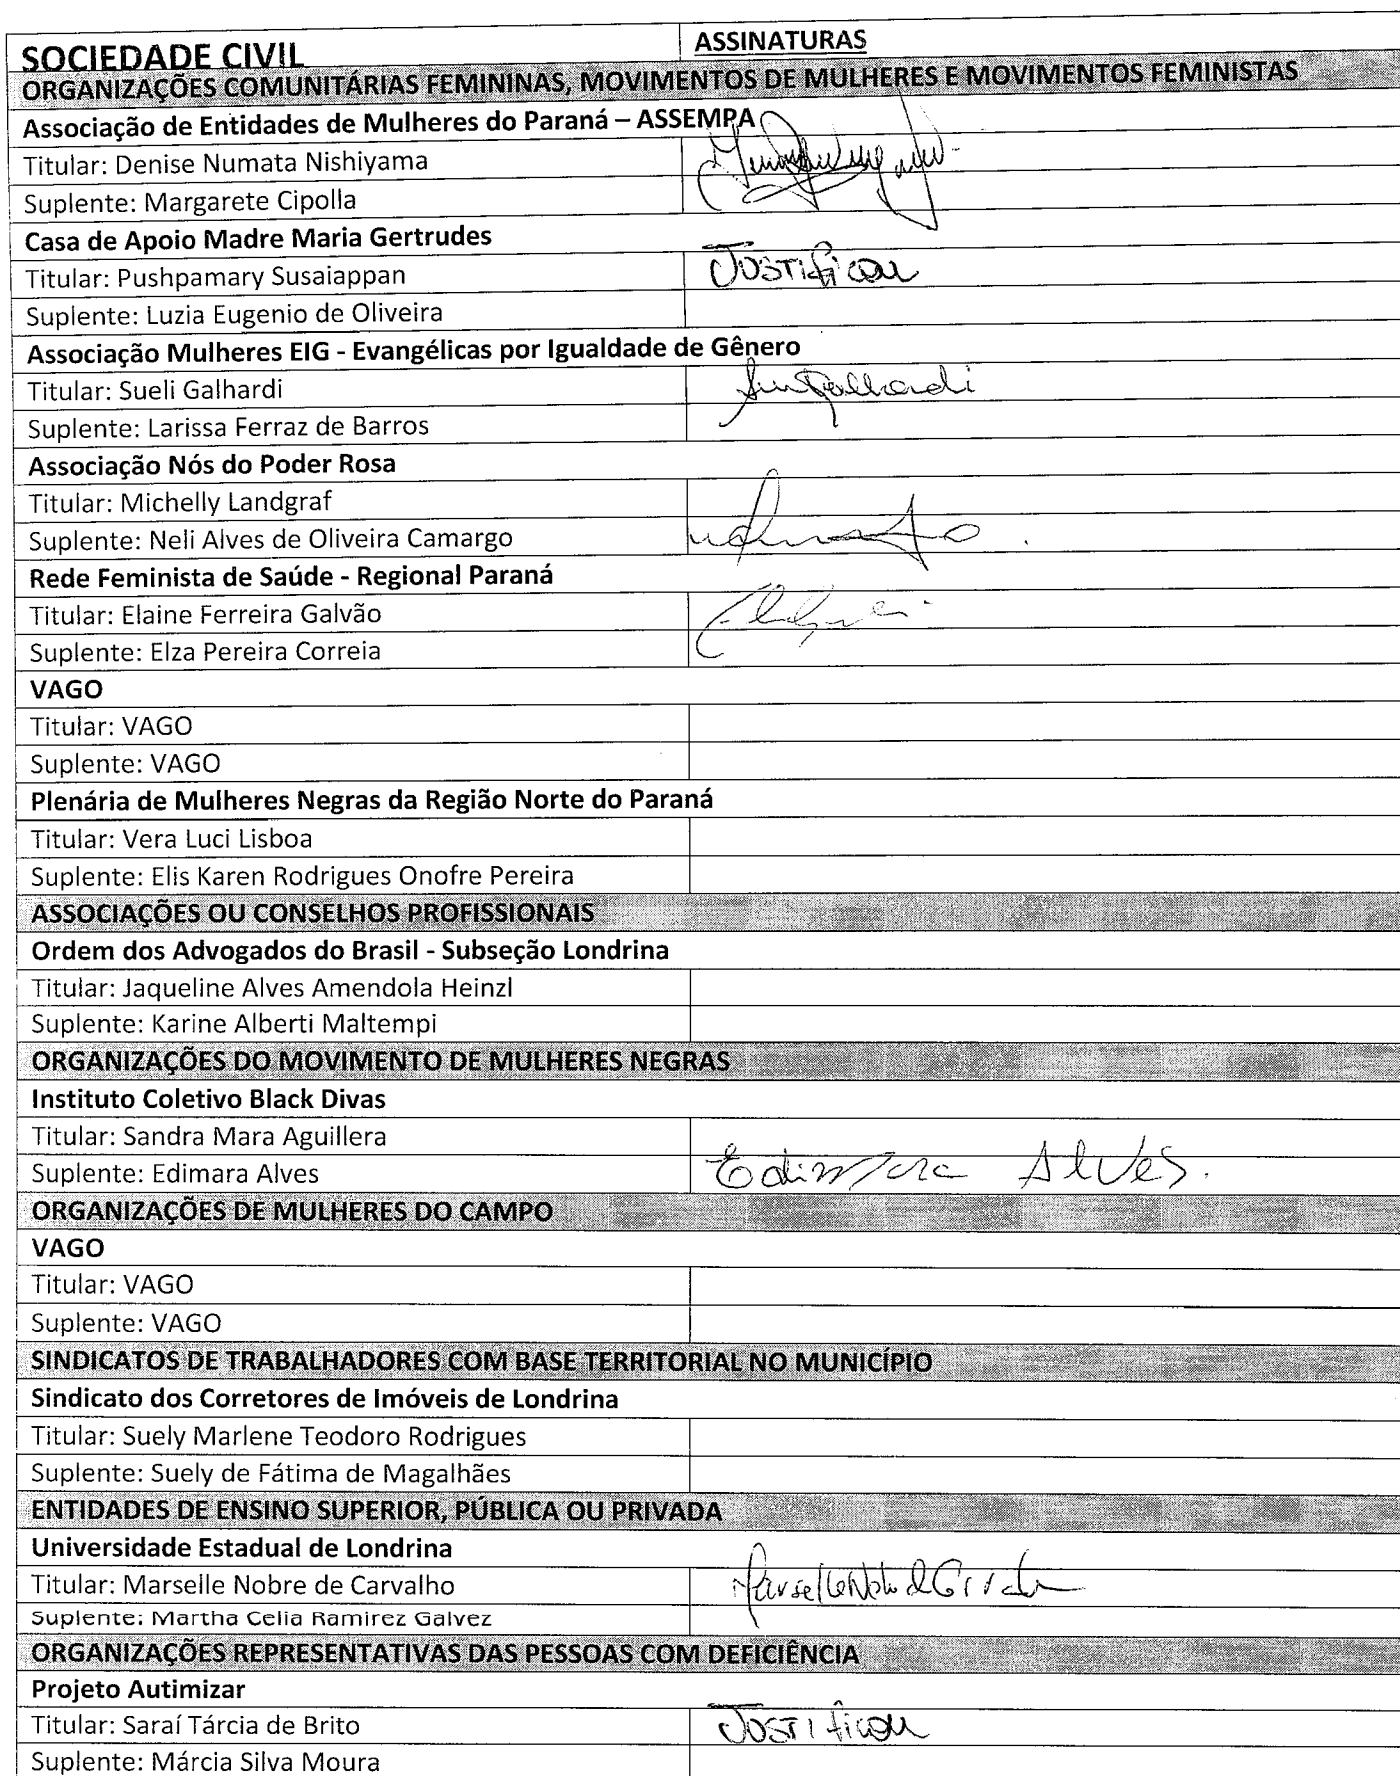 SOCIEDADE CIVIL ASSINATURAS
ORGANIZAÇÕES COMUNITÁRIAS FEMININAS, MOVIMENTOS DE MULHERES E MOVIMENTOS FEMINISTAS
Associação de Entidades de Mulheres do Paraná – ASSEMPA
Titular: Denise Numata Nishiyama
Suplente: Margarete Cipolla
Casa de Apoio Madre Maria Gertrudes
Titular: Pushpamary Susaiappan Justificou
Suplente: Luzia Eugenio de Oliveira
Associação Mulheres EIG - Evangélicas por Igualdade de Gênero
Titular: Sueli Galhardi Galhardi
Suplente: Larissa Ferraz de Barros
Associação Nós do Poder Rosa
Titular: Michelly Landgraf
Suplente: Neli Alves de Oliveira Camargo
Rede Feminista de Saúde - Regional Paraná
Titular: Elaine Ferreira Galvão
Suplente: Elza Pereira Correia
VAGO
Titular: VAGO
Suplente: VAGO
Plenária de Mulheres Negras da Região Norte do Paraná
Titular: Vera Luci Lisboa
Suplente: Elis Karen Rodrigues Onofre Pereira
ASSOCIAÇÕES OU CONSELHOS PROFISSIONAIS
Ordem dos Advogados do Brasil - Subseção Londrina
Titular: Jaqueline Alves Amendola Heinzl
Suplente: Karine Alberti Maltempi
ORGANIZAÇÕES DO MOVIMENTO DE MULHERES NEGRAS
Instituto Coletivo Black Divas
Titular: Sandra Mara Aguillera
Suplente: Edimara Alves Edimara Alves.
ORGANIZAÇÕES DE MULHERES DO CAMPO
VAGO
Titular: VAGO
Suplente: VAGO
SINDICATOS DE TRABALHADORES COM BASE TERRITORIAL NO MUNICÍPIO
Sindicato dos Corretores de Imóveis de Londrina
Titular: Suely Marlene Teodoro Rodrigues
Suplente: Suely de Fátima de Magalhães
ENTIDADES DE ENSINO SUPERIOR, PÚBLICA OU PRIVADA
Universidade Estadual de Londrina
Titular: Marselle Nobre de Carvalho
Suplente: Martha Celia Ramirez Galvez
ORGANIZAÇÕES REPRESENTATIVAS DAS PESSOAS COM DEFICIÊNCIA
Projeto Autimizar
Titular: Saraí Tárcia de Brito Justificou
Suplente: Márcia Silva Moura